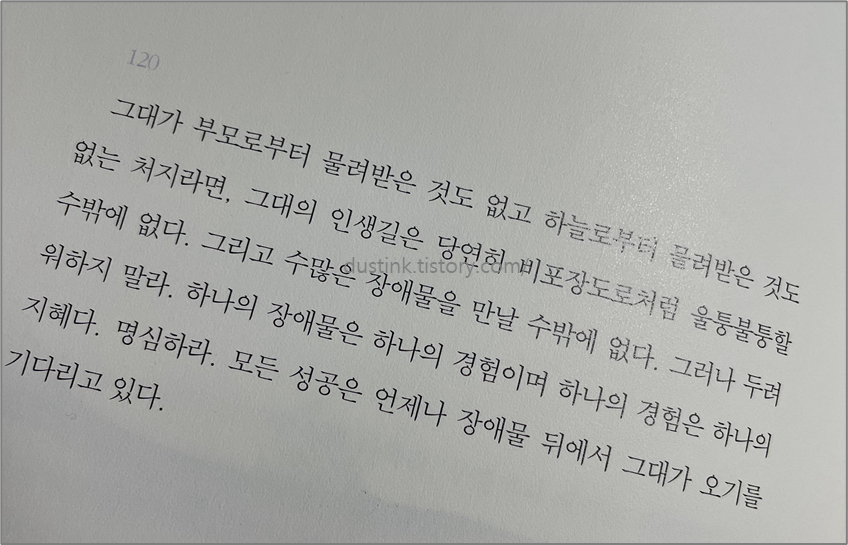 120
그대가 부모로부터 물려받은 것도 없고 하늘로부터 물려받은 것도
없는 처지라면, 그대의 인생길은 당연히 비포장도로처럼 울퉁불퉁할
수밖에 없다. 그리고 수많은 장애물을 만날 수밖에 없다. 그러나 두려
워하지 말라. 하나의 장애물은 하나의 경험이며 하나의 경험은 하나의
지혜다. 명심하라. 모든 성공은 언제나 장애물 뒤에서 그대가 오기를
기다리고 있다.
dustink.tistory.com